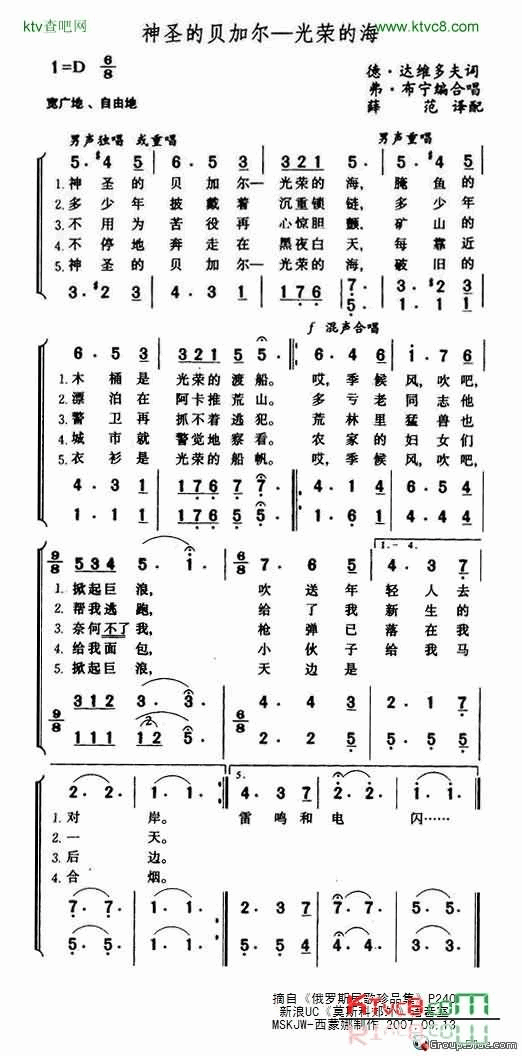 ktv查吧网
www.ktvc8.com
神圣的贝加尔—光荣的海
1=D 6/8
德·达维多夫词
弗·布宁编合唱
薛 范 译配
宽广地、自由地
男声独唱 或重唱
男声重唱
5·#4 5 6·5 3 321 1· 5·#4 5
1.神圣的贝加尔—光荣的海,腌鱼的
2.多少年披戴着沉重锁链,多少年
3.不用为苦役再心惊胆颤,矿山的
4.不停地奔走在黑夜白天,每靠近
5.神圣的贝加尔—光荣的海,破旧的
3·#2 3 4·3 1 176 6·
f 混声合唱
6·5 3 321 5 5· 6·4 6 1·7 6
1.木桶是光荣的渡船。哎,季候风,吹吧,
2.漂泊在阿卡推荒山。多亏老同志他
3.警卫再抓不着逃犯。荒林里猛兽也
4.城市就警觉地察看。农家的妇女们
5.衣衫是光荣的船帆。哎,季候风,吹吧,
4·3 1 176 7 7· 4·1 4 6·5 4
1·1 1 176 5 5· 1·6 1
9/8 534 5· 1· 6/8 7·6 5 1.-4. 4·3 7
1.掀起巨浪,吹送年轻人去
2.帮我逃跑,给了我新生的
3.奈何不了我,枪弹已落在我
4.给我面包,小伙子给我马
5.掀起巨浪,天边是
9/8 312 3· 3· 6/8 4·4 3 2·3 7
2· 2· 1· 1· 5. 4·3 7 2· 2· 1· 1·
1.对岸。雷鸣和电闪……
2.一天。
3.后边。
4.合烟。
7· 7· 1· 1· 2·3 7 7· 7· 1· 1·
5· 5· 1· 1·
摘自《俄罗斯民歌珍品集》P240
MSKJW-西蒙娜制作 2007.09.13